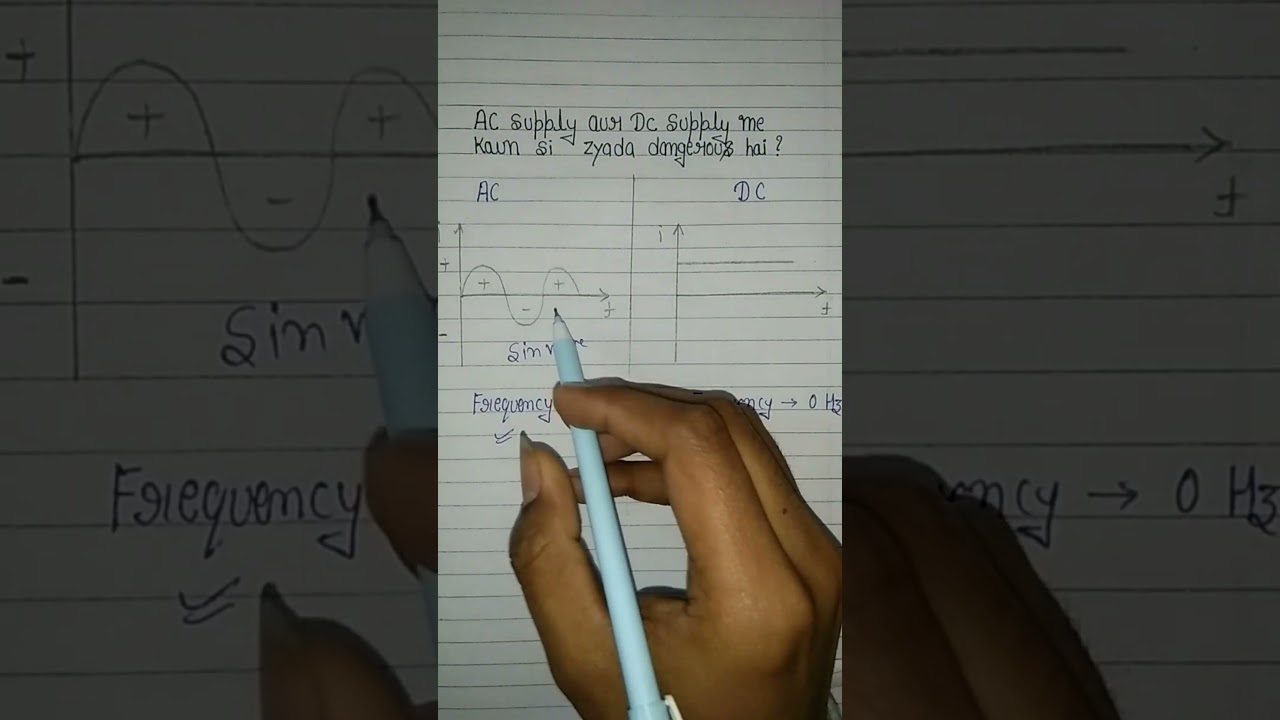 AC supply aur Dc supply me
Kaun si zyada dangerous hai ?
AC
DC
i
+
+
+
-
t
-
t
Sin
Frequency
→ 0 Hz